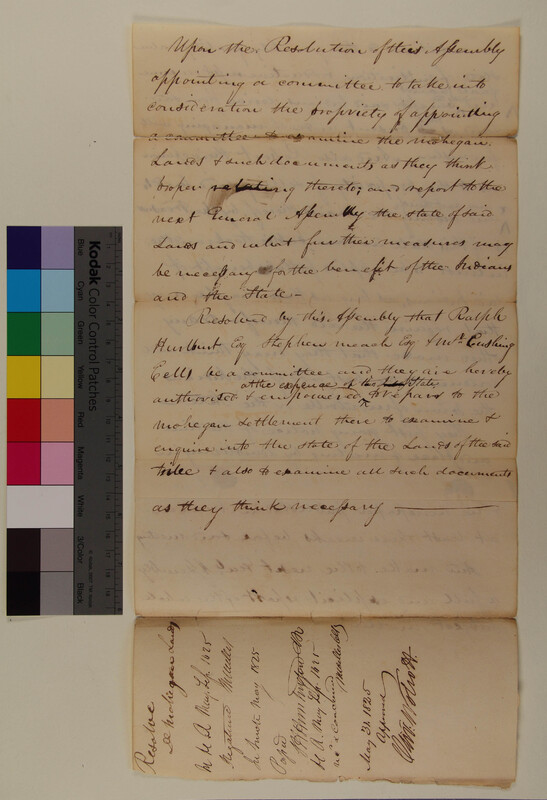 Upon the Resolution of this Assembly
appointing a committee to take into
consideration the propriety of appointing
a committee to examine the mohegan
Lands & such documents as they think
proper relating thereto; and report to the
next General Assembly the state of said
Lands and what further measures may
be necessary for the benefit of the Indians
and the State —
Resolved by this Assembly that Ralph
Hurlbut Esq Stephen Esq & Cushing
Eells be a committee and they are hereby
at the expense of the State
authorised & empowered ^ to repair to the
mohegan settlement there to examine &
enquire into the state of the Lands of the said
tribe & also to examine all such documents
as they think necessary —
Resolve
Mohegan Lands
H A May 1825
Negatived
May 1825
Passed
H. A. May 1825
May 31, 1825
Kodak Color Control Patches
Blue
Cyan
Green
Yellow
Red
Magenta
White
3/Color
Black